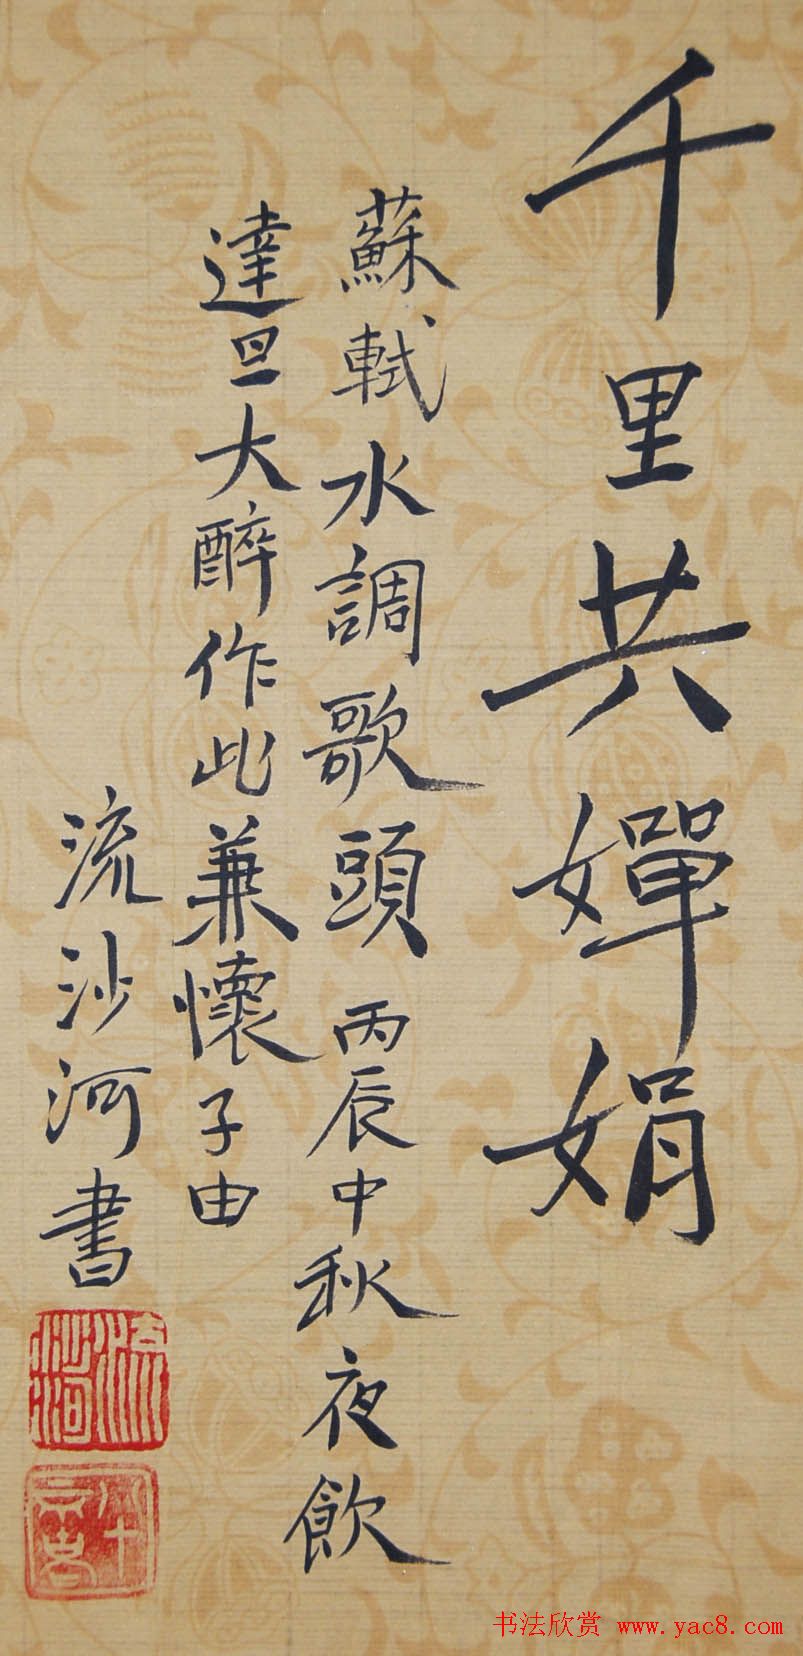 千里共嬋娟
蘇軾水調歌頭 丙辰中秋夜飲
達旦大醉作此兼懷子由
流沙河書
流沙河
八十
书法欣赏 www.yac8.com